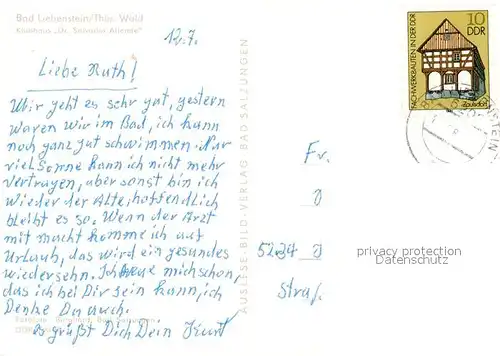 Bad Liebenstein/Thür. Wald
Kurhaus „Dr. Salvador Allende"
12.7.
Liebe Ruth!
Mir geht es sehr gut, gestern
waren wir im Bad, ich kann
noch ganz gut schwimmen. Nur
viel Sonne kann ich nicht mehr
vertragen, aber sonst bin ich
wieder der Alte, hoffendlich
bleibt es so. Wenn der Arzt
mit macht komme ich auf
Urlaub, das wird ein gesundes
wiedersehn. Ich freue mich schon,
das ich bei Dir sein kann, ich
Denke Du auch.
es grüßt Dich Dein Kurt
AUSLESE-BILD-VERLAG BAD SALZUNGEN
10
DDR
FACHWERKBAUTEN IN DER DDR
Zaulsdorf
Fr.
J
5234 J
Straß.
privacy protection
Datenschutz